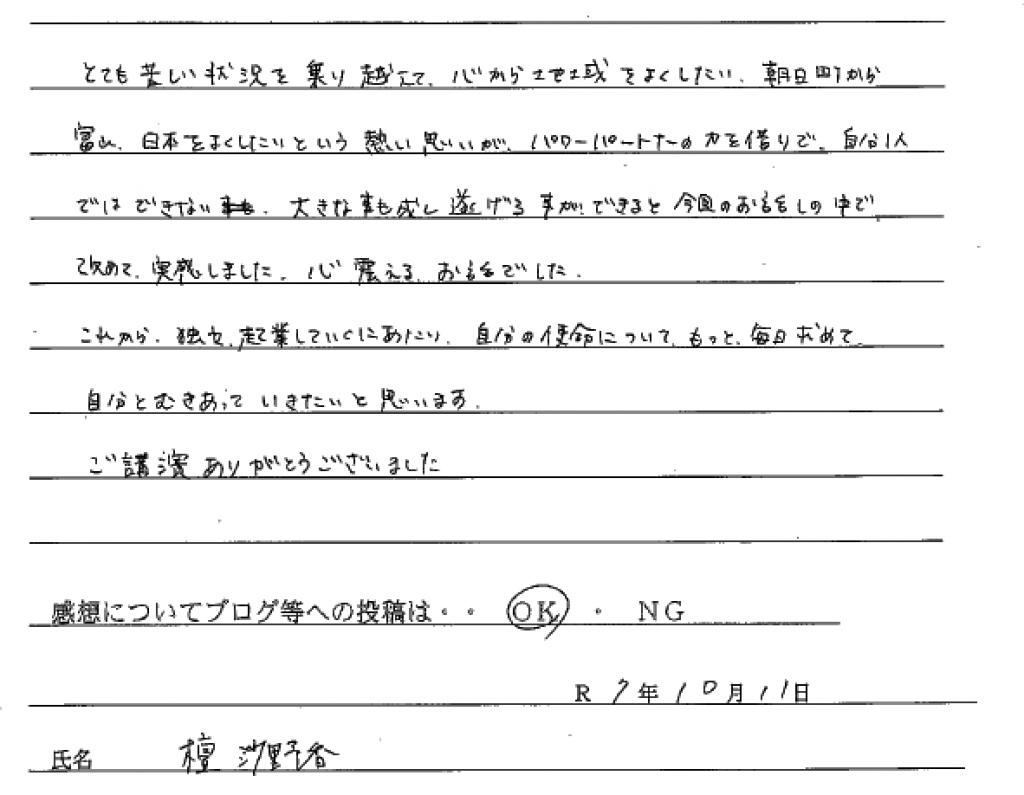 とても苦しい状況を乗り越えて、心から地域をよくしたい、朝日町から
富山、日本をよくしたいという熱い思いが、パワーパートナーの力を借りて、自分1人
ではできない、大きな事も成し遂げる事ができると今回のお話しの中で
改めて、実感しました。心震える、お話でした。
これから、独立、起業していくにあたり、自分の使命について、もっと、毎日求めて、
自分とむきあっていきたいと思います。
ご講演ありがとうございました
感想についてブログ等への投稿は・・ OK ・ NG
R 7年10月11日
氏名 檀 沙野香